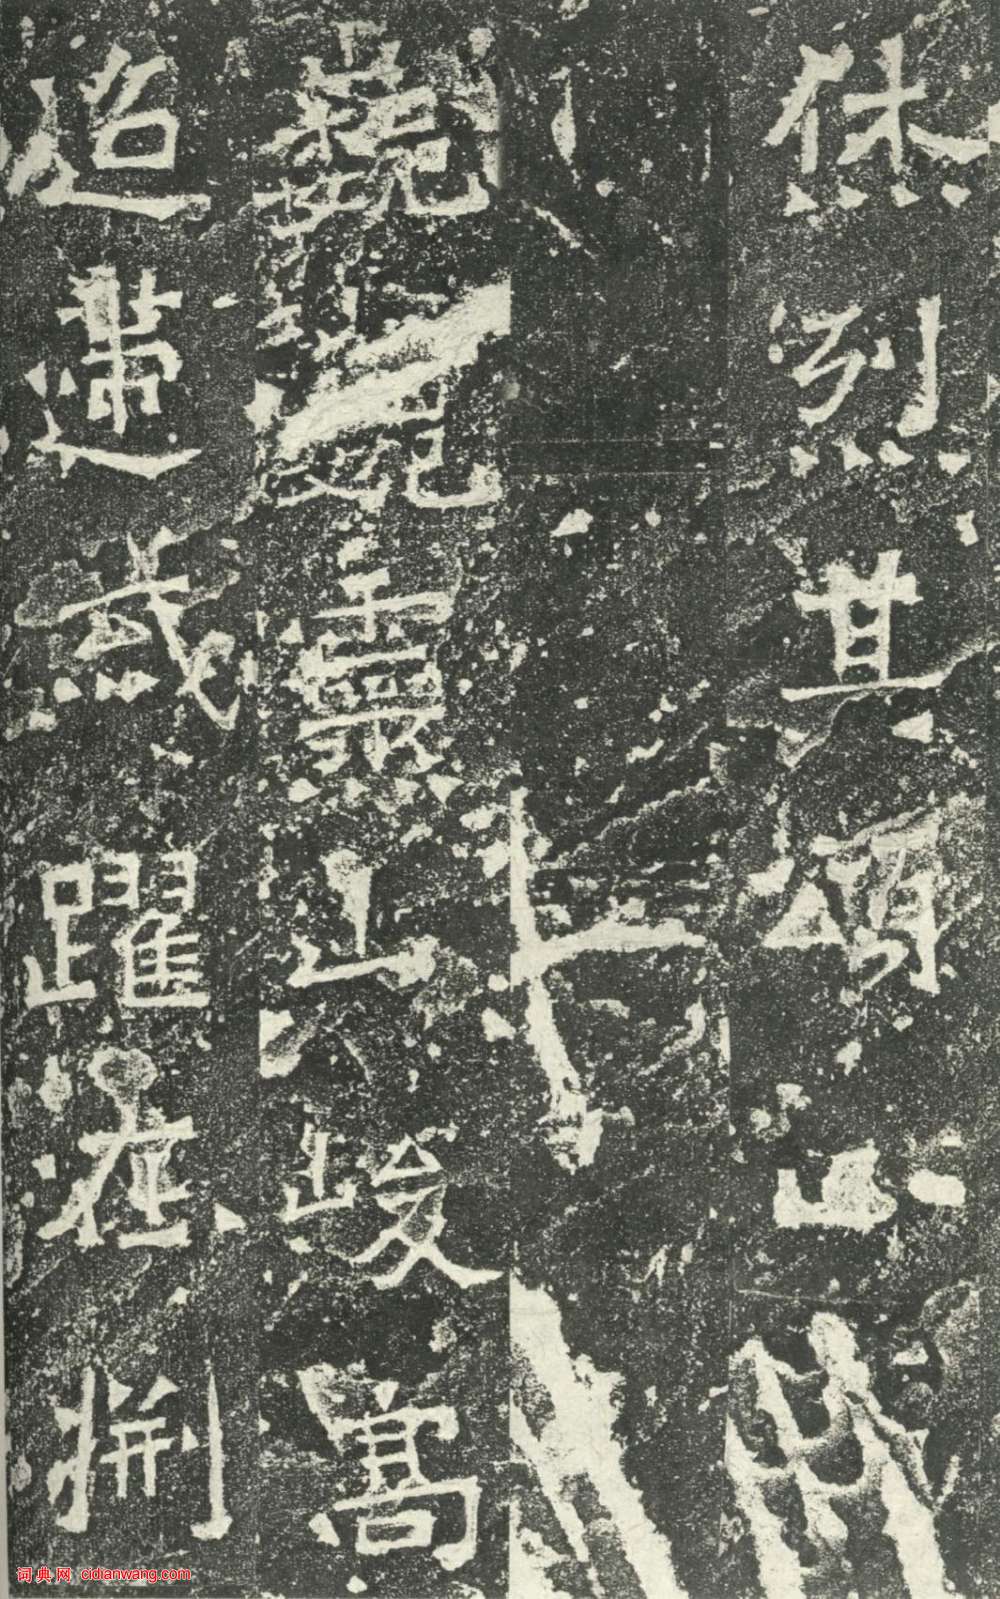 休烈其頌
巍巍靈山峻高
迢遞或躍在淵
词典网 cidianwang.com